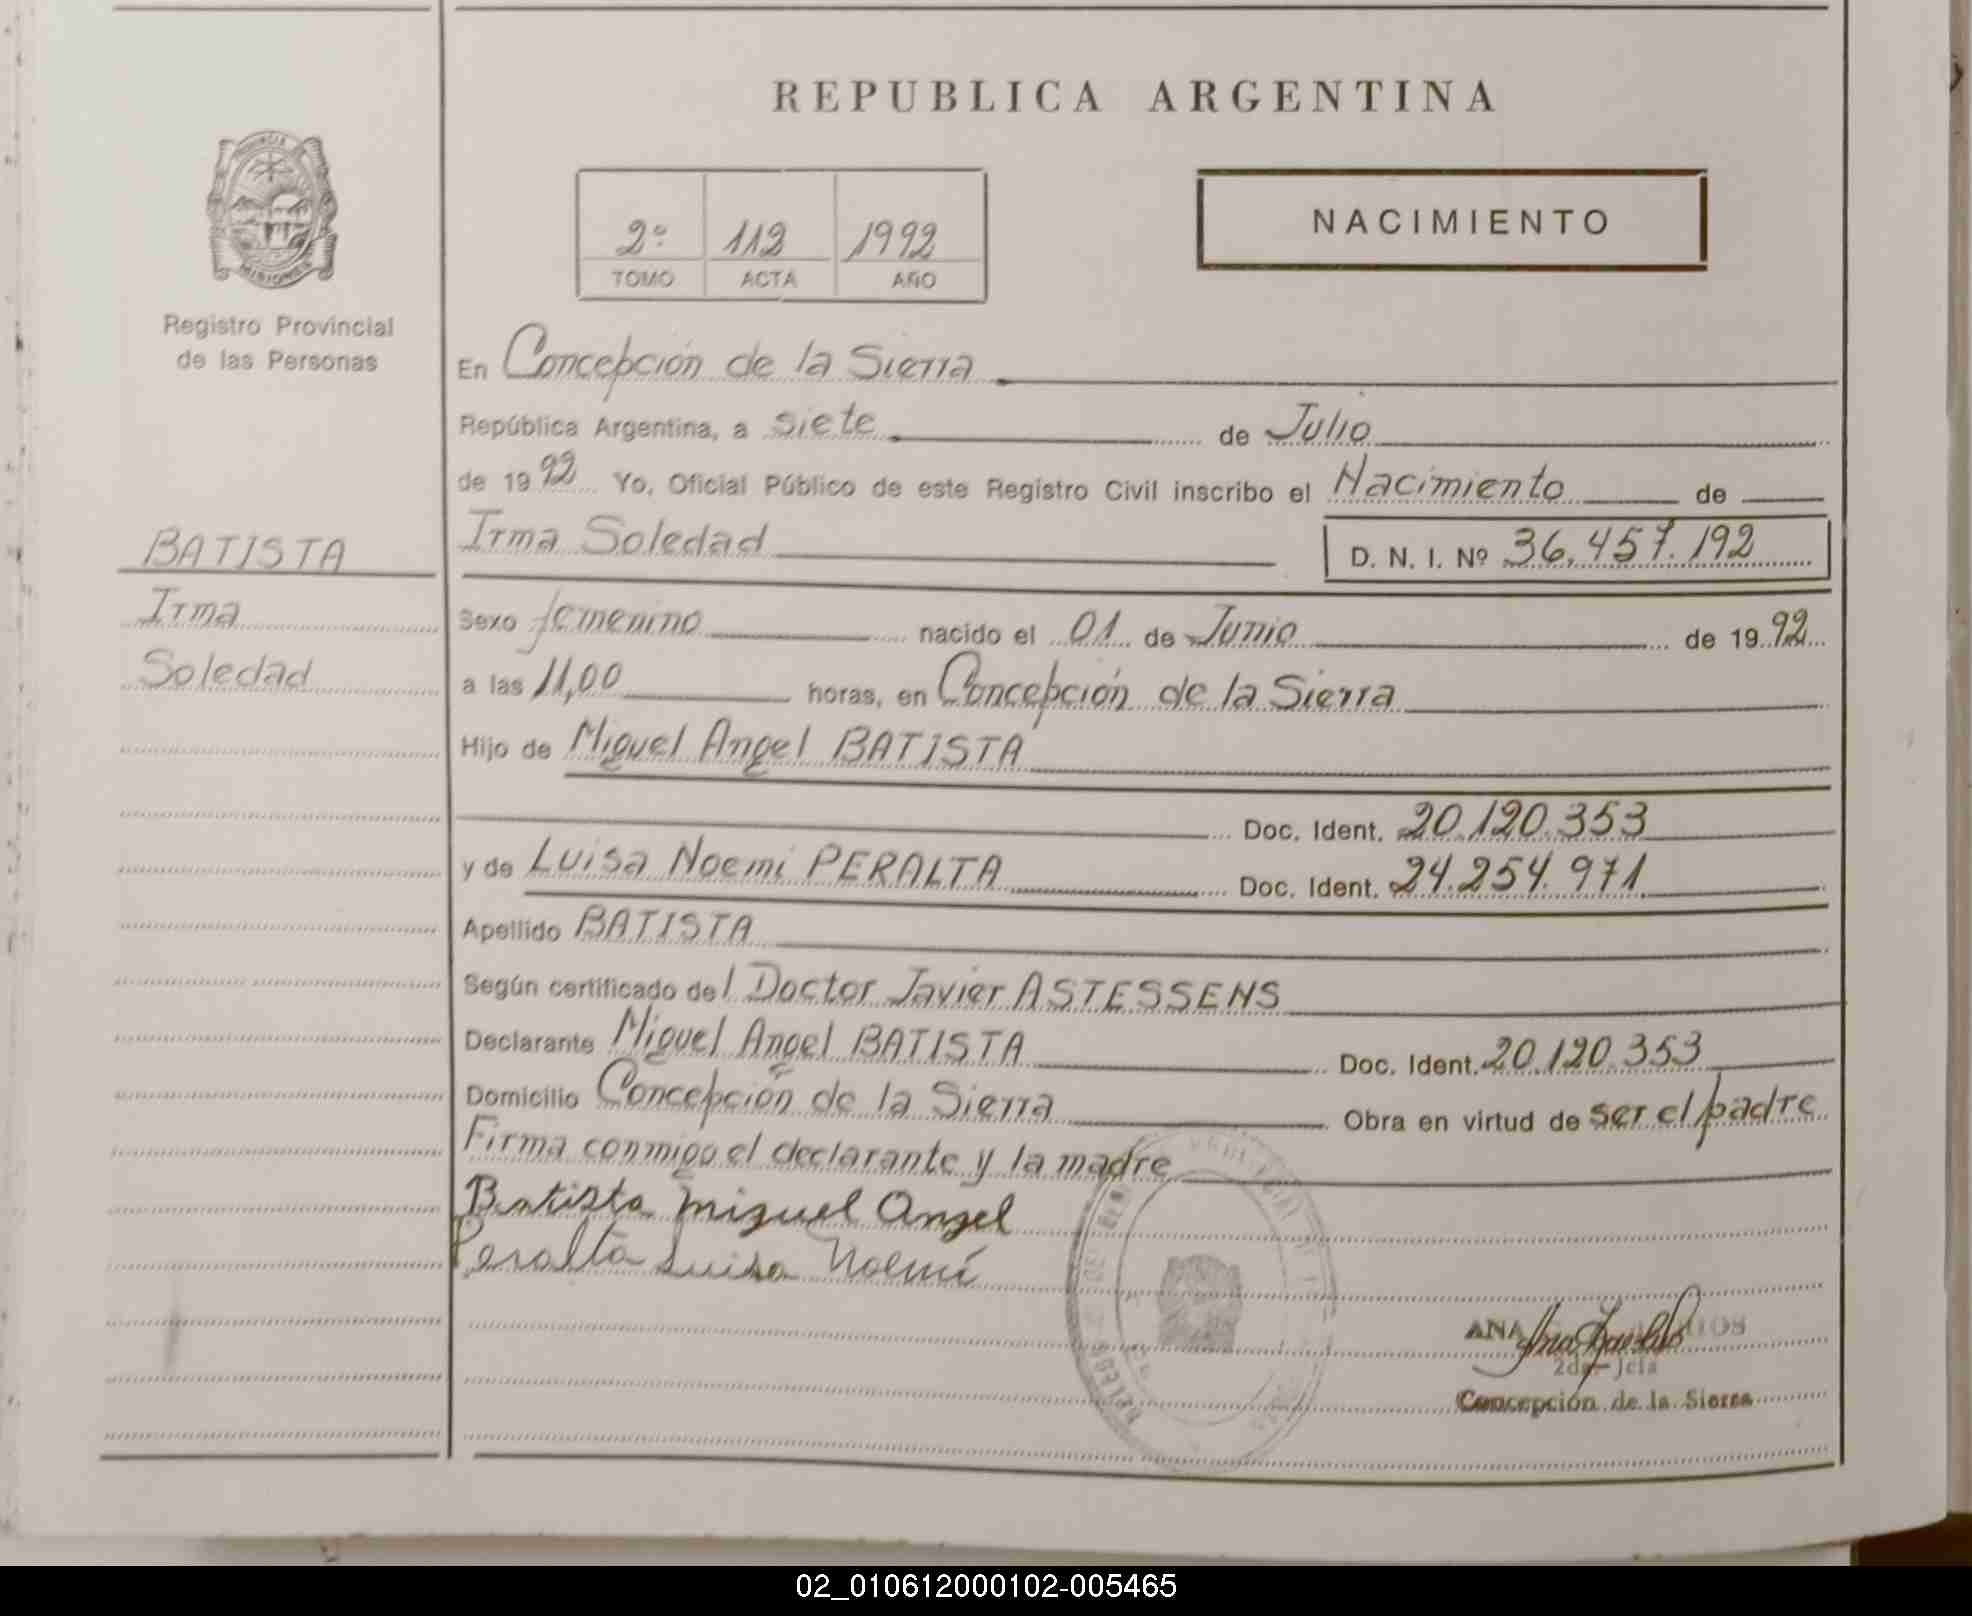 REPUBLICA ARGENTINA
PROVINCIA DE
MISIONES
Registro Provincial
de las Personas
2º 112 1992
TOMO ACTA AÑO
NACIMIENTO
En Concepción de la Sierra
República Argentina, a siete de Julio
de 1992 Yo, Oficial Público de este Registro Civil inscribo el Nacimiento de
BATISTA
Irma
Soledad
Irma Soledad D. N. I. Nº 36.457.192
Sexo femenino nacido el 01 de Junio de 1992
a las 11,00 horas, en Concepción de la Sierra
Hijo de Miguel Angel BATISTA
Doc. Ident. 20.120.353
y de Luisa Noemi PERALTA Doc. Ident. 24.254.971
Apellido BATISTA
Según certificado del Doctor Javier ASTESSENS
Declarante Miguel Angel BATISTA Doc. Ident. 20.120.353
Domicilio Concepción de la Sierra Obra en virtud de ser el padre
Firma conmigo el declarante y la madre
Batista Miguel Angel
Peralta Luisa Noemí
ANA
2da. Jefa
Concepción de la Sierra
02_010612000102-005465